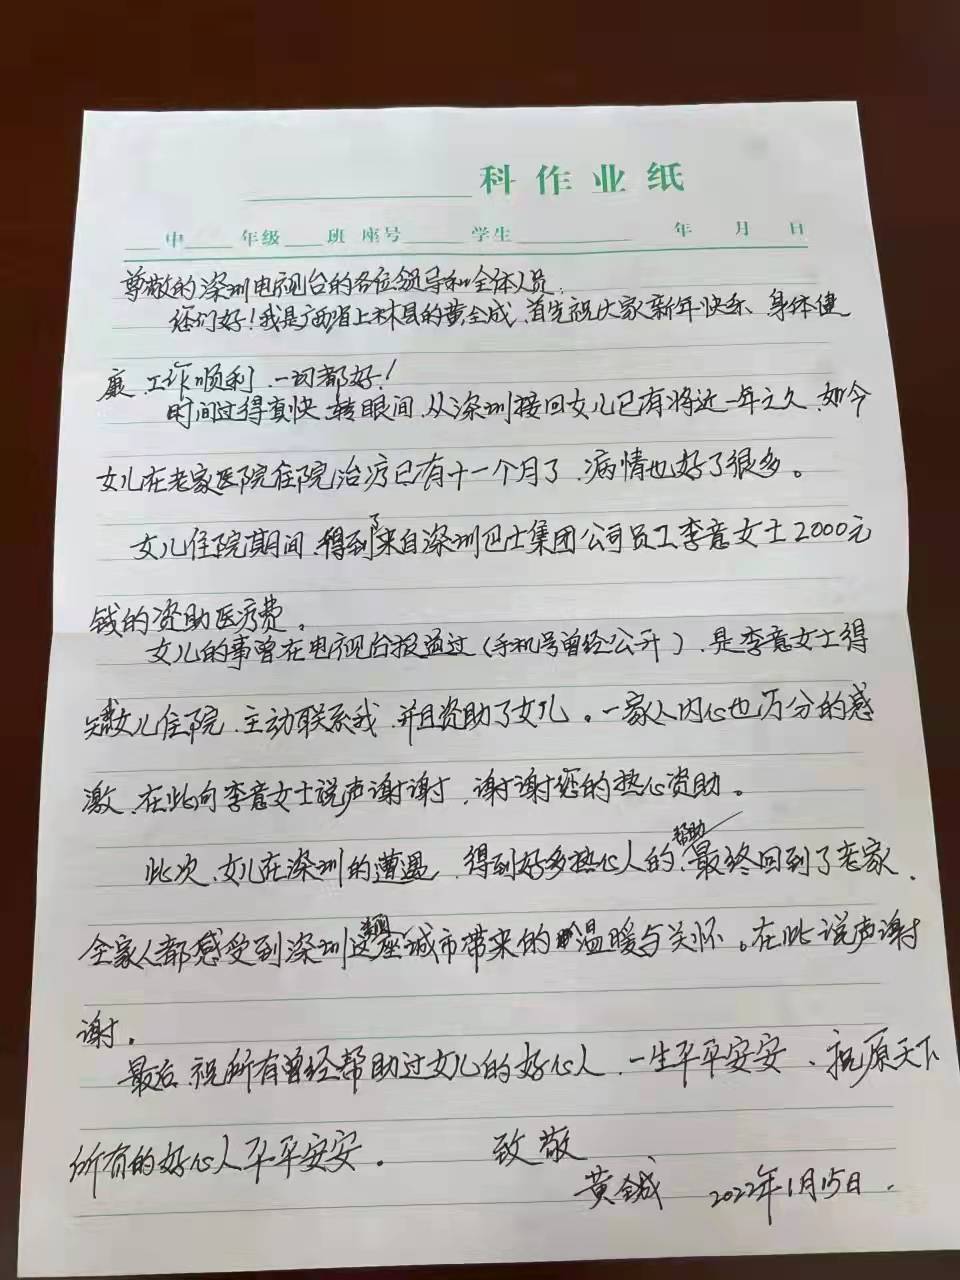 科作业纸
中 年级 班 座号 学生 年 月 日
尊敬的深圳电视台的各位领导和全体人员:
您们好!我是广西省上林县的黄全成、首先祝大家新年快乐、身体健
康、工作顺利、一切都好!
时间过得真快、转眼间、从深圳接回女儿已有将近一年之久、如今
女儿在老家医院住院治疗已有十一个月了、病情也好了很多。
女儿住院期间、得到了来自深圳巴士集团公司员工李意女士2000元
钱的资助医疗费。
女儿的事曾在电视台报道过(手机号曾经公开)、是李意女士得
知女儿住院、主动联系我、并且资助了女儿。一家人内心也万分的感
激、在此向李意女士说声谢谢、谢谢您的热心资助。
此次、女儿在深圳的遭遇、得到好多热心人的帮助、最终回到了老家、
全家人都感受到深圳这座城市带来的温暖与关怀。在此说声谢
谢。
最后、祝所有曾经帮助过女儿的好心人、一生平平安安、祝愿天下
所有的好心人平平安安。 致敬
黄全成 2022年1月15日.